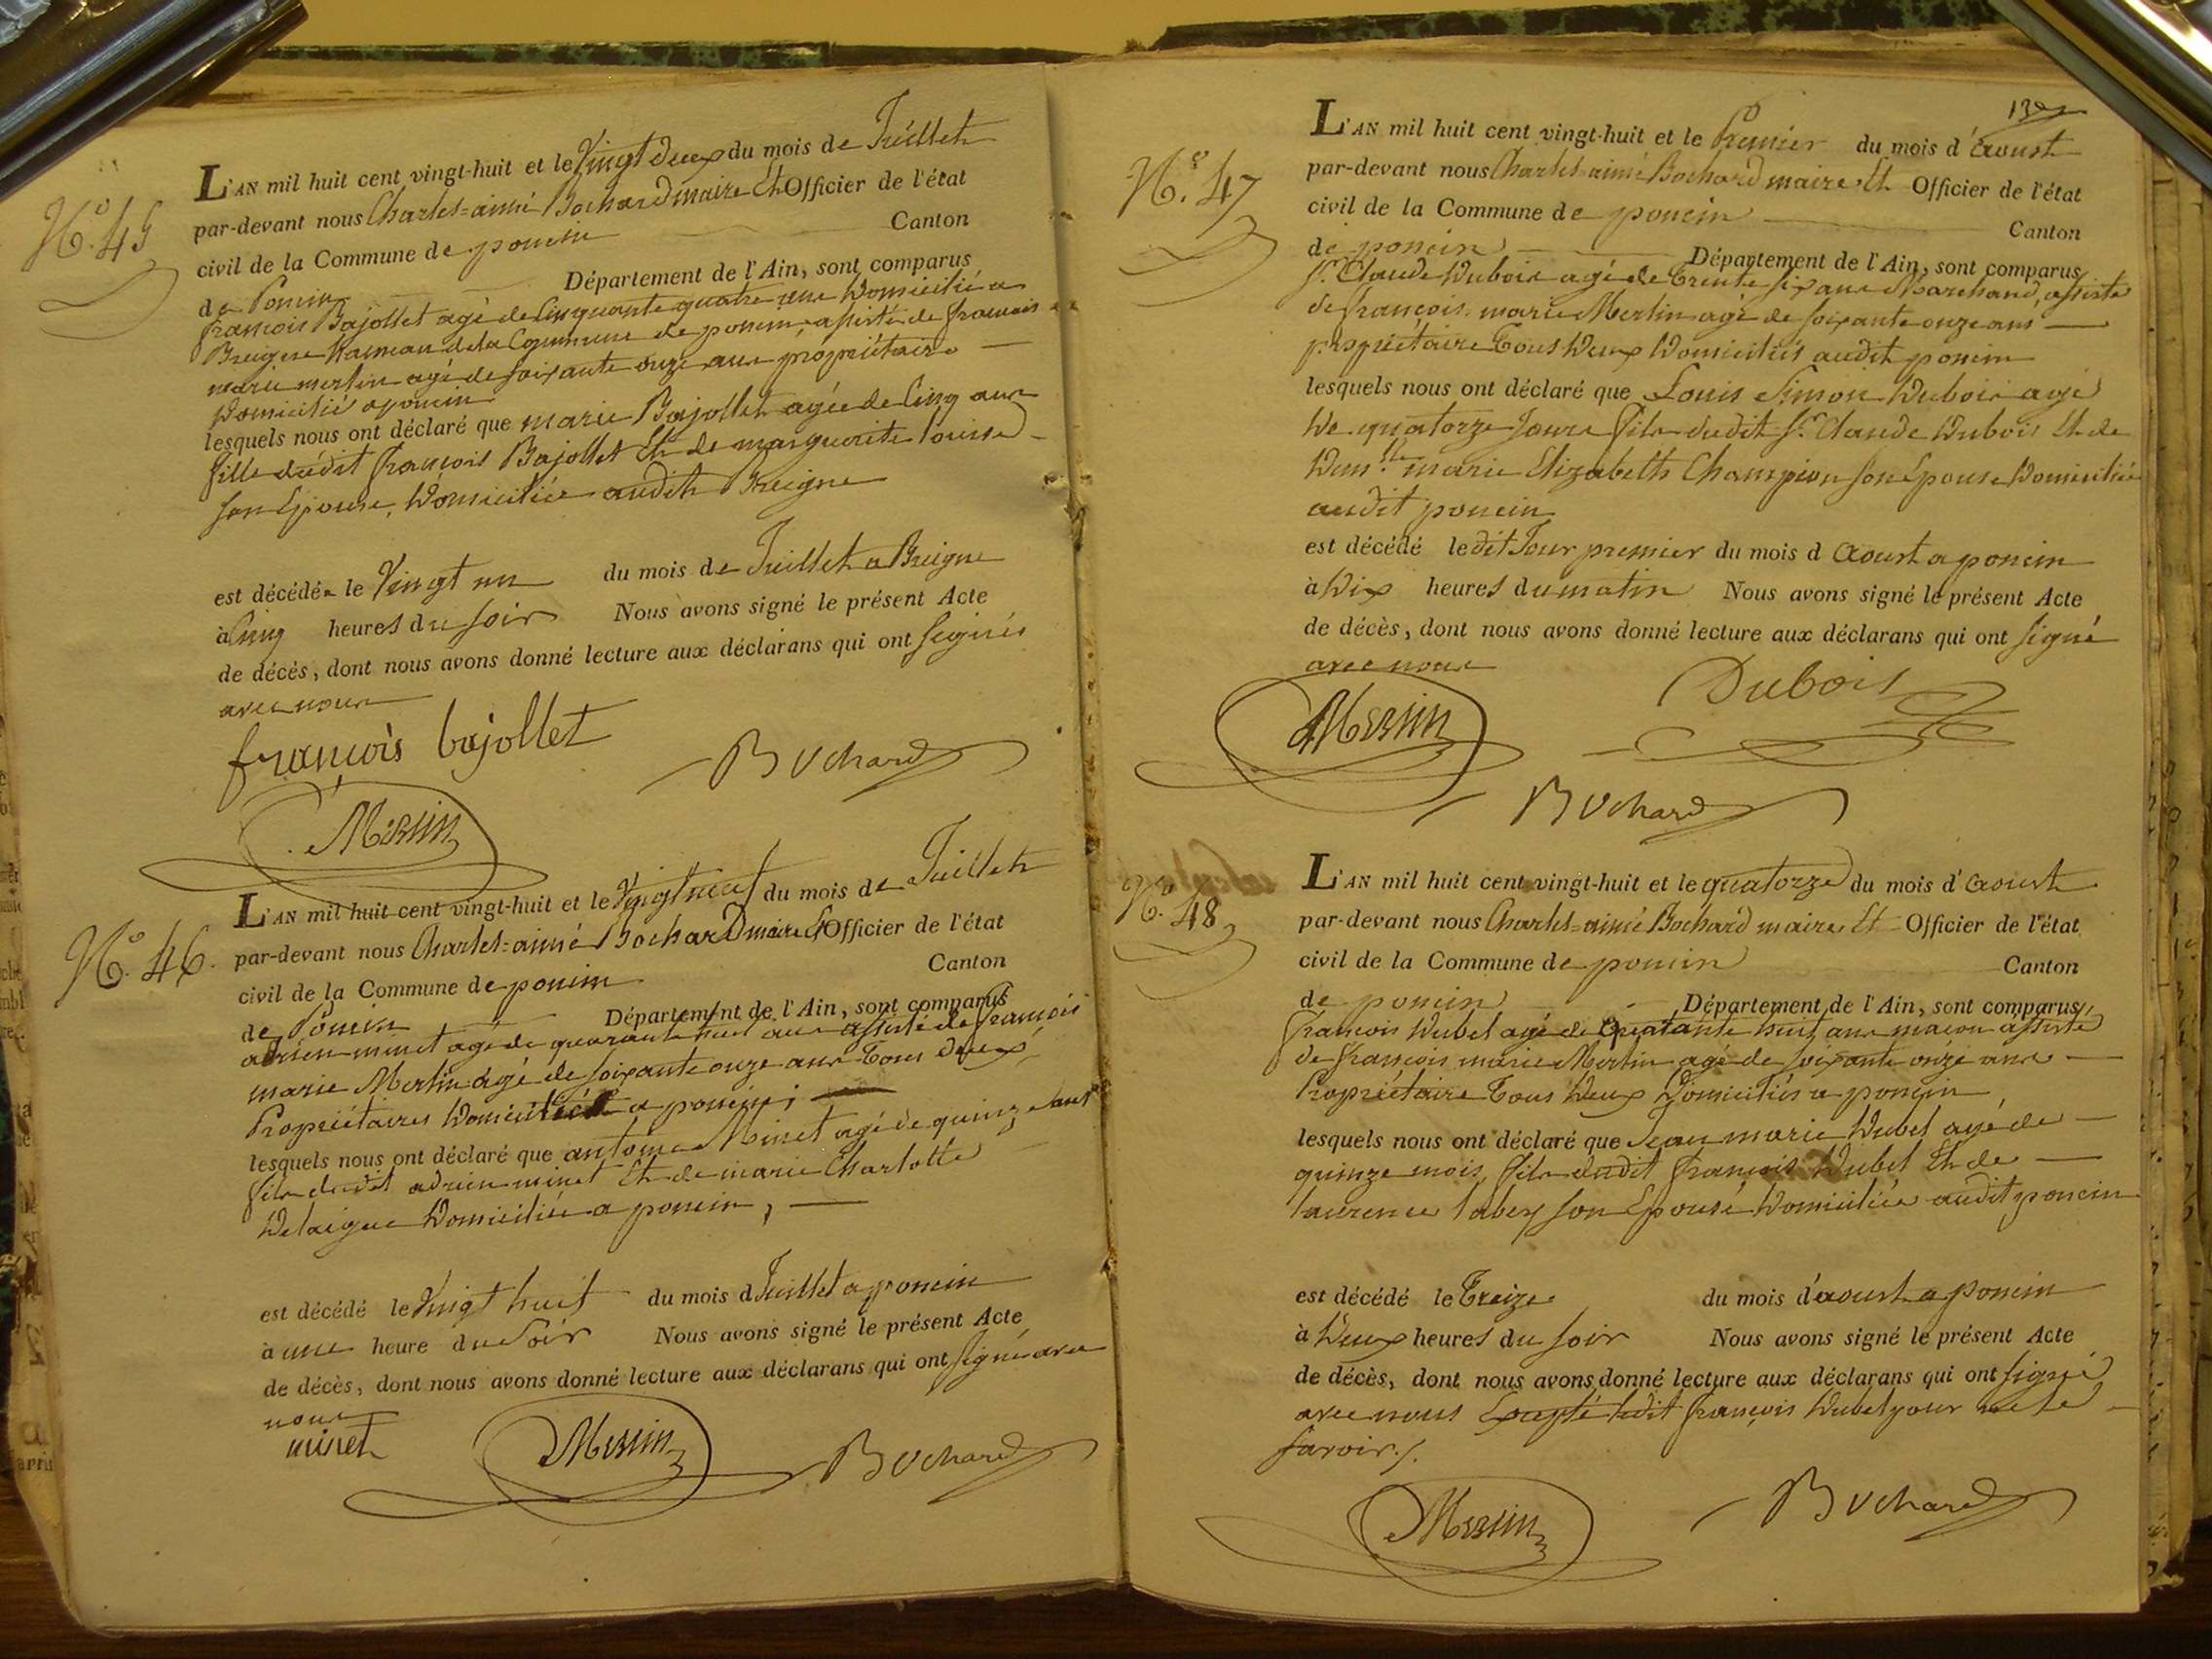 N.º 45
L'AN mil huit cent vingt-huit et le Vingt deux du mois de Juillet
par-devant nous Charles=aimé Bochard maire Et Officier de l'état
civil de la Commune de poncin Canton
de Poncin Département de l'Ain, sont comparus
françois Bajollet agé de Cinquante quatre ans Domicilié a
Breigne hameau de la Commune de poncin, assisté de françois
marie merlin agé de soixante onze ans propriétaire
Domicilié a poncin
lesquels nous ont déclaré que marie Bajollet agée de Cinq ans
fille dudit françois Bajollet Et de marguerite
son Epouse, Domiciliée audit Breigne
est décédée le Vingt un du mois de Juillet a Breigne
à Cinq heures du soir Nous avons signé le présent Acte
de décès, dont nous avons donné lecture aux déclarans qui ont signés
avec nous
françois bajollet
Bochard
Merlin
N.º 46.
L'AN mil huit cent vingt-huit et le Vingt neuf du mois de Juillet
par-devant nous Charles=aimé Bochard maire Et Officier de l'état
civil de la Commune de poncin Canton
de Poncin Département de l'Ain, sont comparus
adrien minet agé de quarante huit ans assisté de françois
marie Merlin agé de soixante onze ans Tous deux
Propriétaires Domiciliés a poncin;
lesquels nous ont déclaré que antoine Minet agé de quinze ans
fils dudit adrien minet Et de marie Charlotte
Delaigue Domiciliée a poncin,
est décédé le Vingt huit du mois d Juillet a poncin
à une heure du Soir Nous avons signé le présent Acte
de décès, dont nous avons donné lecture aux déclarans qui ont signé avec
nous
minet
Merlin
Bochard
N.º 47
L'AN mil huit cent vingt-huit et le Premier du mois d'aoust
par-devant nous Charles=aimé Bochard maire Et Officier de l'état
civil de la Commune de poncin Canton
de poncin Département de l'Ain, sont comparus
S.r Claude Dubois agé de Trente six ans Marchand, assisté
de françois marie Merlin agé de soixante onze ans
propriétaire Tous Deux Domiciliés audit poncin
lesquels nous ont déclaré que Louis Simon Dubois agé
De quatorze Jours fils dudit S.r Claude Dubois Et de
marie Elizabeth Champion son Epouse Domiciliée
audit poncin
est décédé le dit Jour premier du mois d aoust a poncin
à Dix heures du matin Nous avons signé le présent Acte
de décès, dont nous avons donné lecture aux déclarans qui ont signé
avec nous
Dubois
Merlin
Bochard
N.º 48
L'AN mil huit cent vingt-huit et le quatorze du mois d'aoust
par-devant nous Charles=aimé Bochard maire Et Officier de l'état
civil de la Commune de poncin Canton
de poncin Département de l'Ain, sont comparus
françois Dubet agé de Quarante huit ans maçon assisté
de françois marie Merlin agé de soixante onze ans
Propriétaire Tous Deux Domiciliés a poncin
lesquels nous ont déclaré que Jean marie Dubet agé de
quinze mois, fils dudit françois Dubet Et de
laurence son Epouse Domiciliée audit poncin
est décédé le Treize du mois d'aoust a poncin
à Deux heures du soir Nous avons signé le présent Acte
de décès, dont nous avons donné lecture aux déclarans qui ont signé
avec nous Excepté ledit françois Dubet pour ne le
savoir./.
Merlin
Bochard